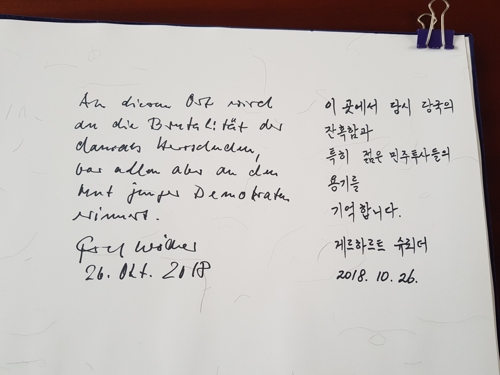 An diesem Ort wird
an die Brutalität der
damals Herrschenden,
vor allem aber an den
Mut junger Demokraten
erinnert.
26. Okt. 2018
이 곳에서 당시 당국의
잔혹함과
특히 젊은 민주투사들의
용기를
기억합니다.
게르하르트 슈뢰더
2018. 10. 26.